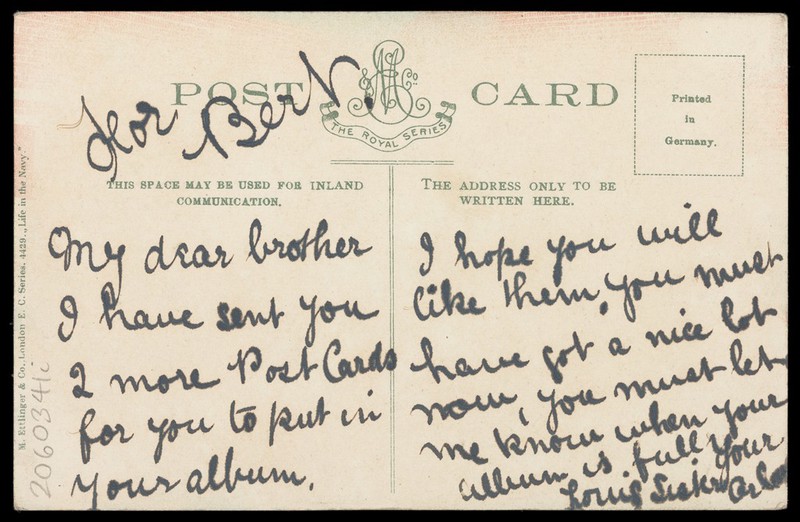 For Bert.
POST CARD
& Co.
THE ROYAL SERIES
Printed
in
Germany.
THIS SPACE MAY BE USED FOR INLAND
COMMUNICATION.
THE ADDRESS ONLY TO BE
WRITTEN HERE.
My dear brother
I have sent you
2 more Post Cards
for you to put in
your album.
I hope you will
like them, you must
have got a nice lot
now, you must let
me know when your
album is full your
Sister
M. Ettlinger & Co., London E. C. Series. 4429. „Life in the Navy."
2060341i